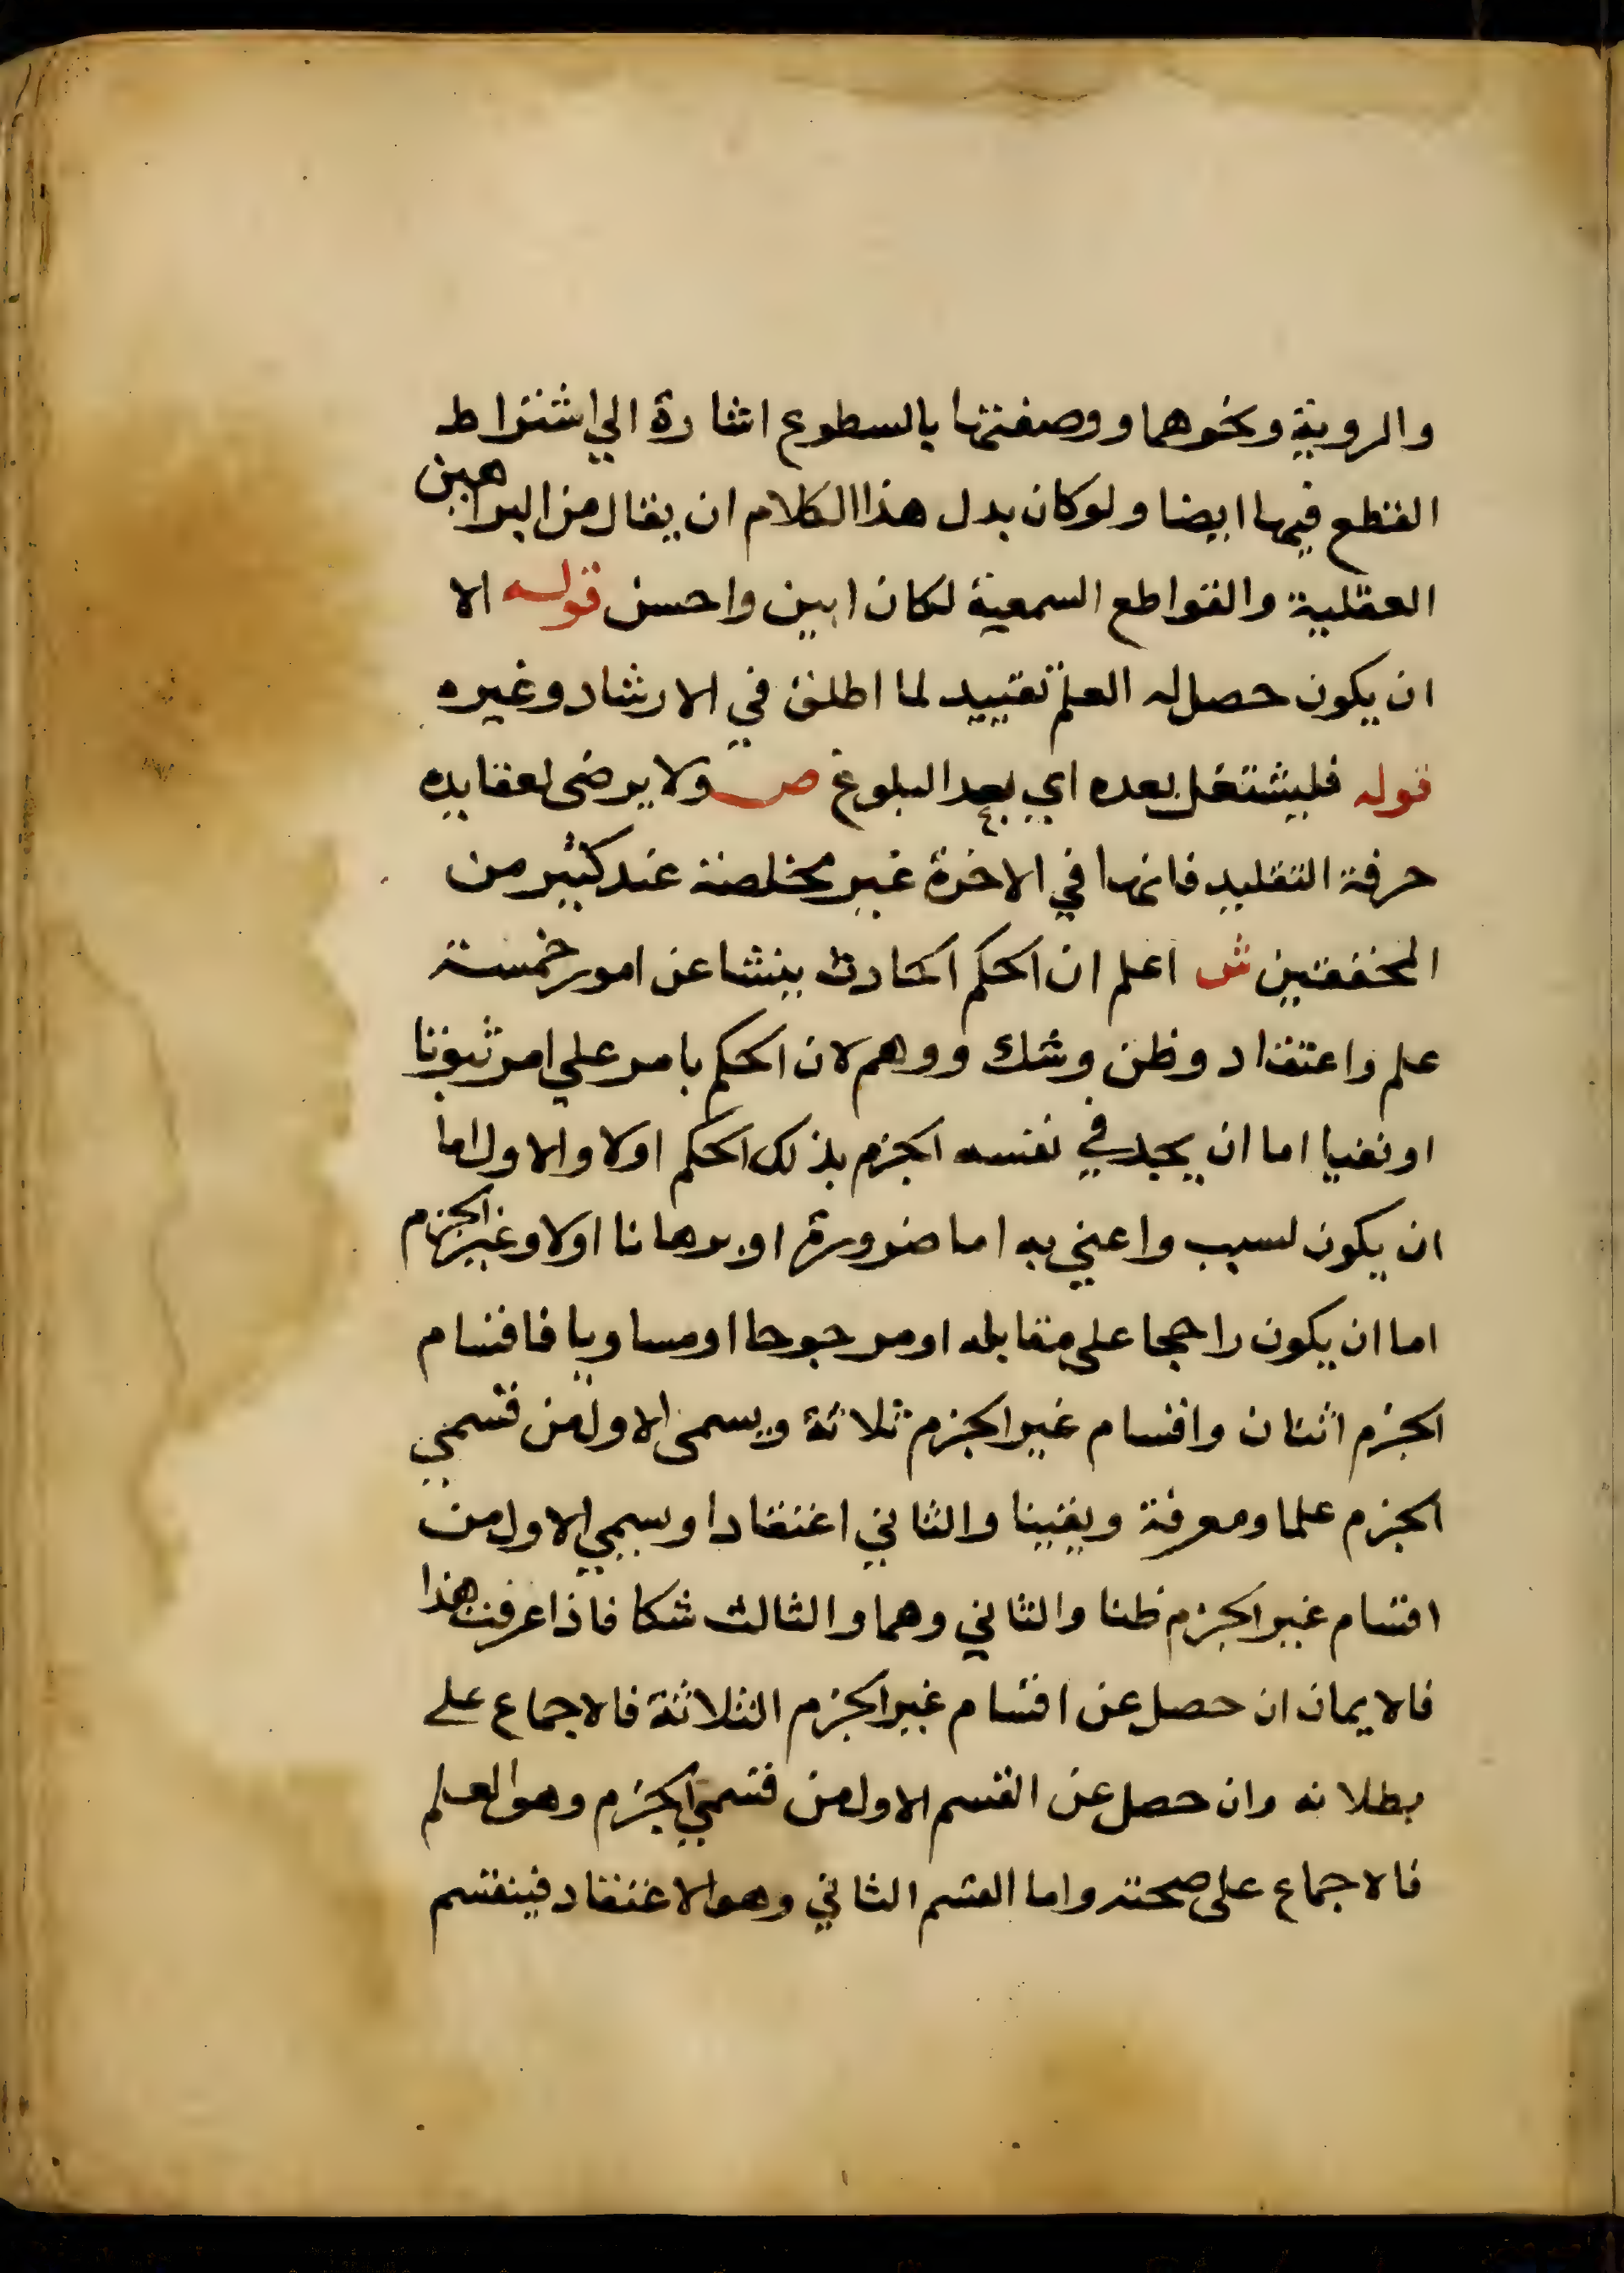 والروية ونحوهما ووصفتها بالسطوع اشارة الي اشتراط
القطع فيها ايضا ولوكان بدل هذا الكلام ان يقال من البراهين
العقلية والقواطع السمعية لكان ابين واحسن قوله الا
ان يكون حصل له العلم تقييد لما اطلق في الارشاد وغيره
قوله فليشتغل بعده اي بعد البلوغ ص ولا يرضى لعقايده
حرفة التقليد فانها في الاخرة غير مخلصة عند كثير من
المحققين ش اعلم ان الحكم الحادث ينشا عن امور خمسة
علم واعتقاد وظن وشك ووهم لان الحكم بامر على امر ثبوتا
او نفيا اما ان يجد في نفسه الجزم بذلك الحكم اولا والاول اما
ان يكون لسبب واعني به اما ضرورة او برهانا اولا وغير الجزم
اما ان يكون راجحا على مقابله او مرجوحا او مساويا فاقسام
الجزم اثنان واقسام غير الجزم ثلاثة ويسمى الاول من قسمي
الجزم علما ومعرفة ويقينا والثاني اعتقادا ويسمي الاول من
اقسام غير الجزم ظنا والثاني وهما والثالث شكا فاذا عرفت هذا
فالايمان ان حصل عن اقسام غير الجزم الثلاثة فالاجماع على
بطلانه وان حصل عن القسم الاول من قسمي الجزم وهو العلم
فالاجماع على صحته واما القسم الثاني وهو الاعتقاد فينقسم